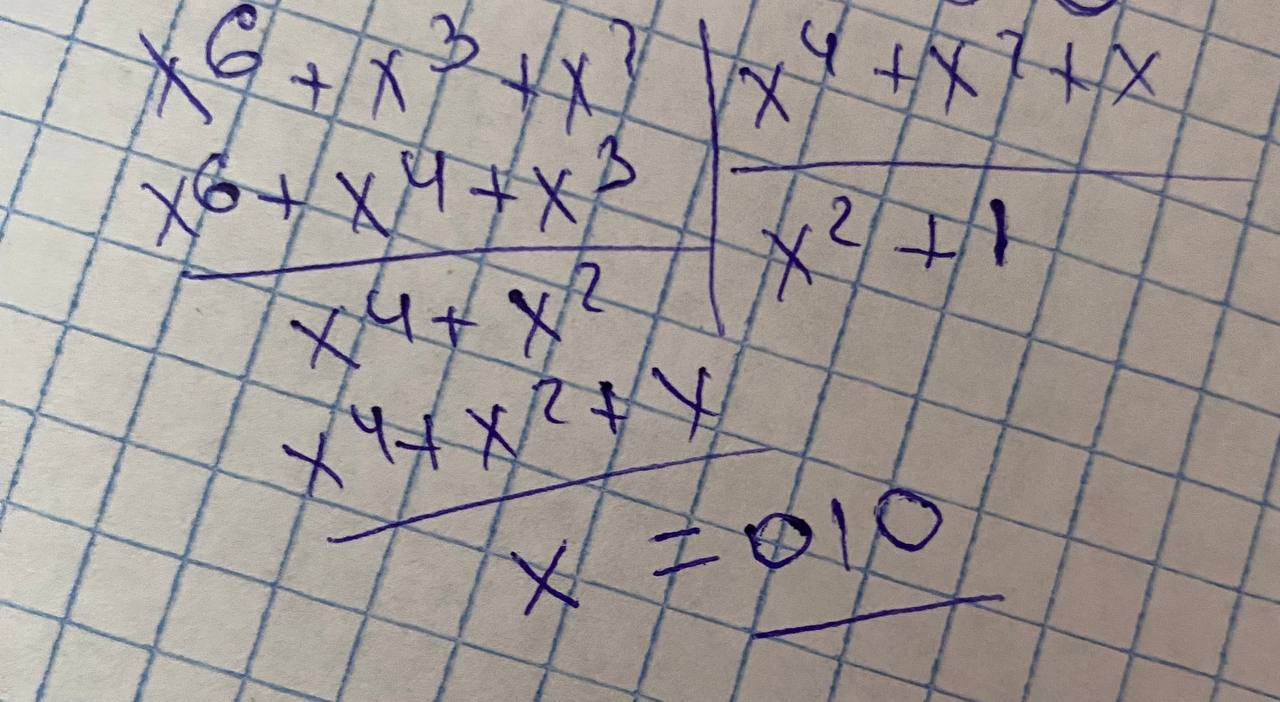 x⁶ + x³ + x² | x⁴ + x² + x
x⁶ + x⁴ + x³ | x² + 1
x⁴ + x²
x⁴ + x² + x
x = 010